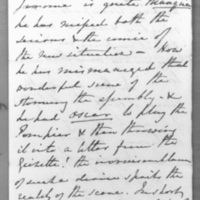 Someone is quite
he has missed both the
serious & the comic of
the new situation - How
he has mismanaged that
wonderful scene of the
storming the assembly - &
he had Oscar to play the
Pompier & then throwing
it into a letter from the
Gazette! the
of such a devices spoils the
reality of the scene. In short